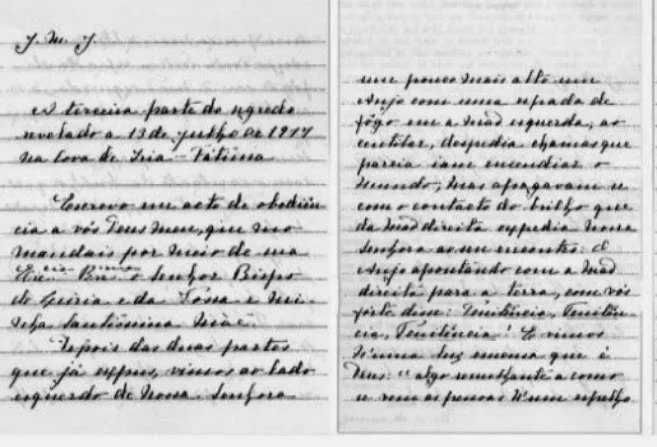 J. M. J.
A terceira parte do segredo
revelado a 13 de julho de 1917
na Cova de Iria - Fátima
Escrevo em acto de obediên
cia a vós Deus meu, que mo
mandais por meio de sua
Ex.cia Rev.ma o Senhor Bispo
de Leiria e da Vossa e mi-
nha Santissima Mãe.
Depois das duas partes
que já expus, vimos ao lado
esquerdo de Nossa Senhora
um pouco mais alto um
Anjo com uma espada de
fôgo em a mão esquerda; ao
centilar, despedia chamas que
parecia iam encendiar o
mundo; mas apagavam-se
com o contacto do brilho que
da mão direita expedia Nossa
Senhora ao seu encontro: O
Anjo apontando com a mão
direita para a terra, com vós
forte disse: Penitência, Penitên-
cia, Penitência! E vimos
n'uma luz emensa que é
Deus: "algo semelhante a como
se vêm as pessoas n'um espelho